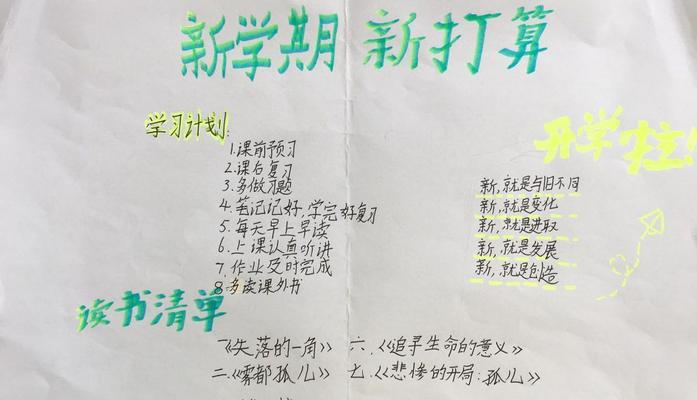 新学期 新打算
学习计划:
1.课前预习
2.课后复习
3.多做习题
4.笔记记好,学完好复习
5.每天早上早读
6.上课认真听讲
7.作业及时完成
8.多读课外书
开学
新,就是与旧不同
新,就是变化
新,就是进取
新,就是发展
新,就是创造
读书清单
一《失落的一角》 六.《追寻生命的意义》
二.《雾都孤儿》 七.《悲惨的开局:孤儿》